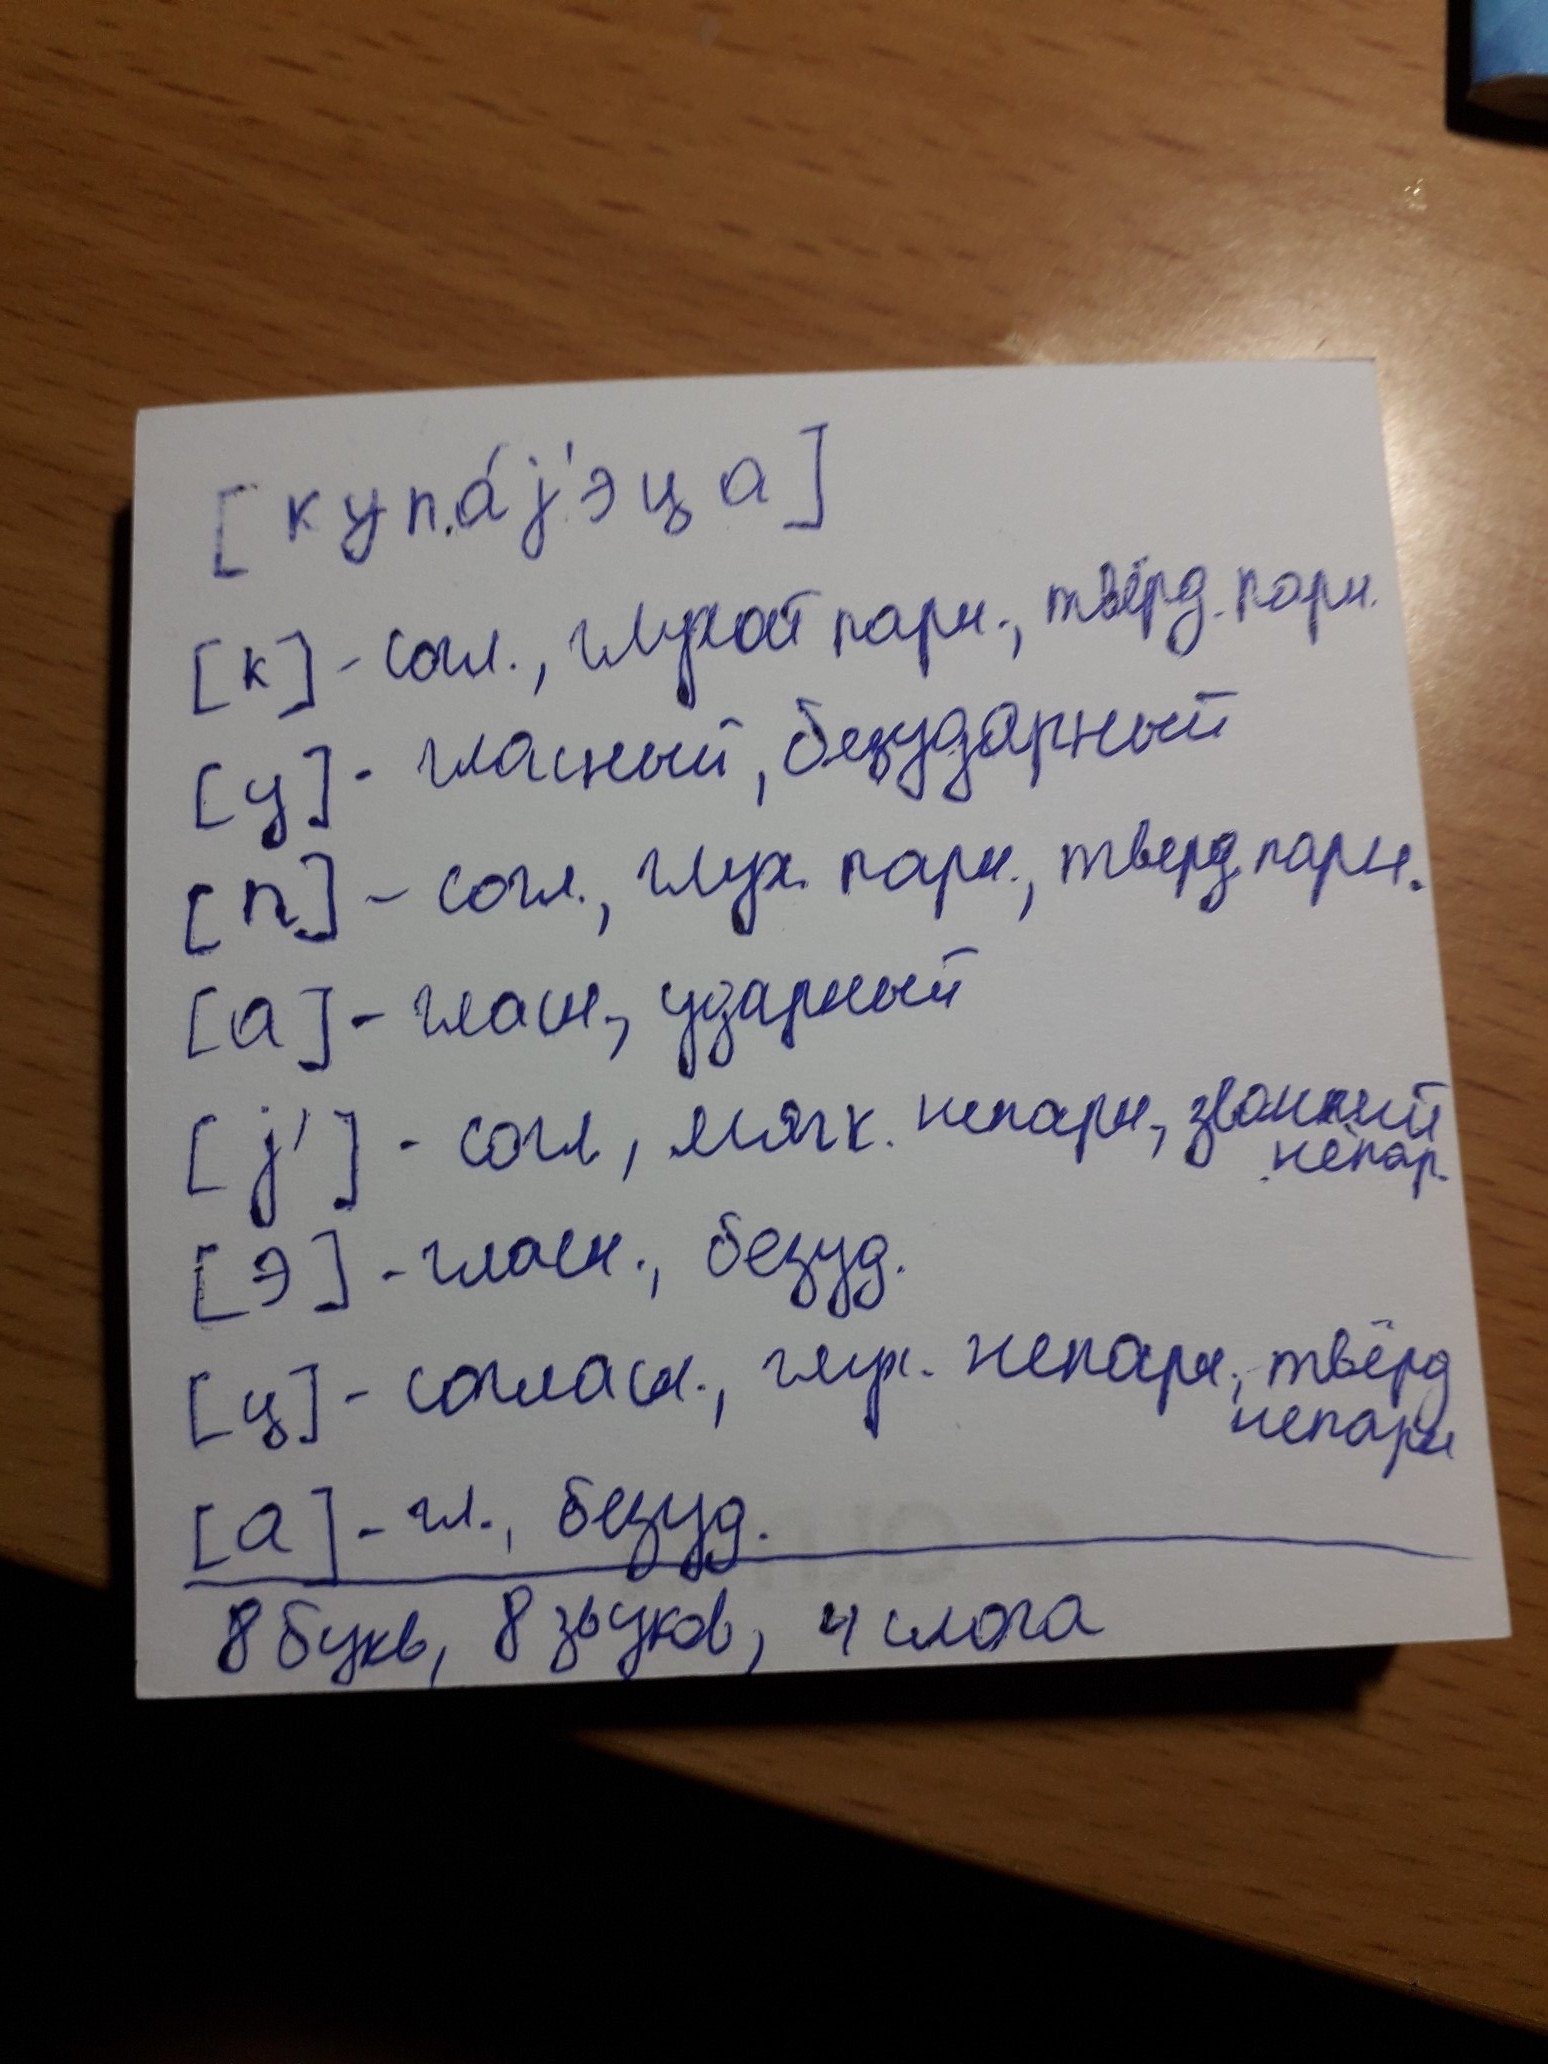 [купа́j'эца]
[к] - согл., глухой парн., твёрд. парн.
[у] - гласный, безударный
[п] - согл., глух. парн., тверд. парн.
[а] - гласн., ударный
[j'] - согл, мягк. непарн, звонкий
непар.
[э] - гласн., безуд.
[ц] - согласн., глух. непарн, твёрд
непарн
[а] - гл., безуд.
8 букв, 8 звуков, 4 слога